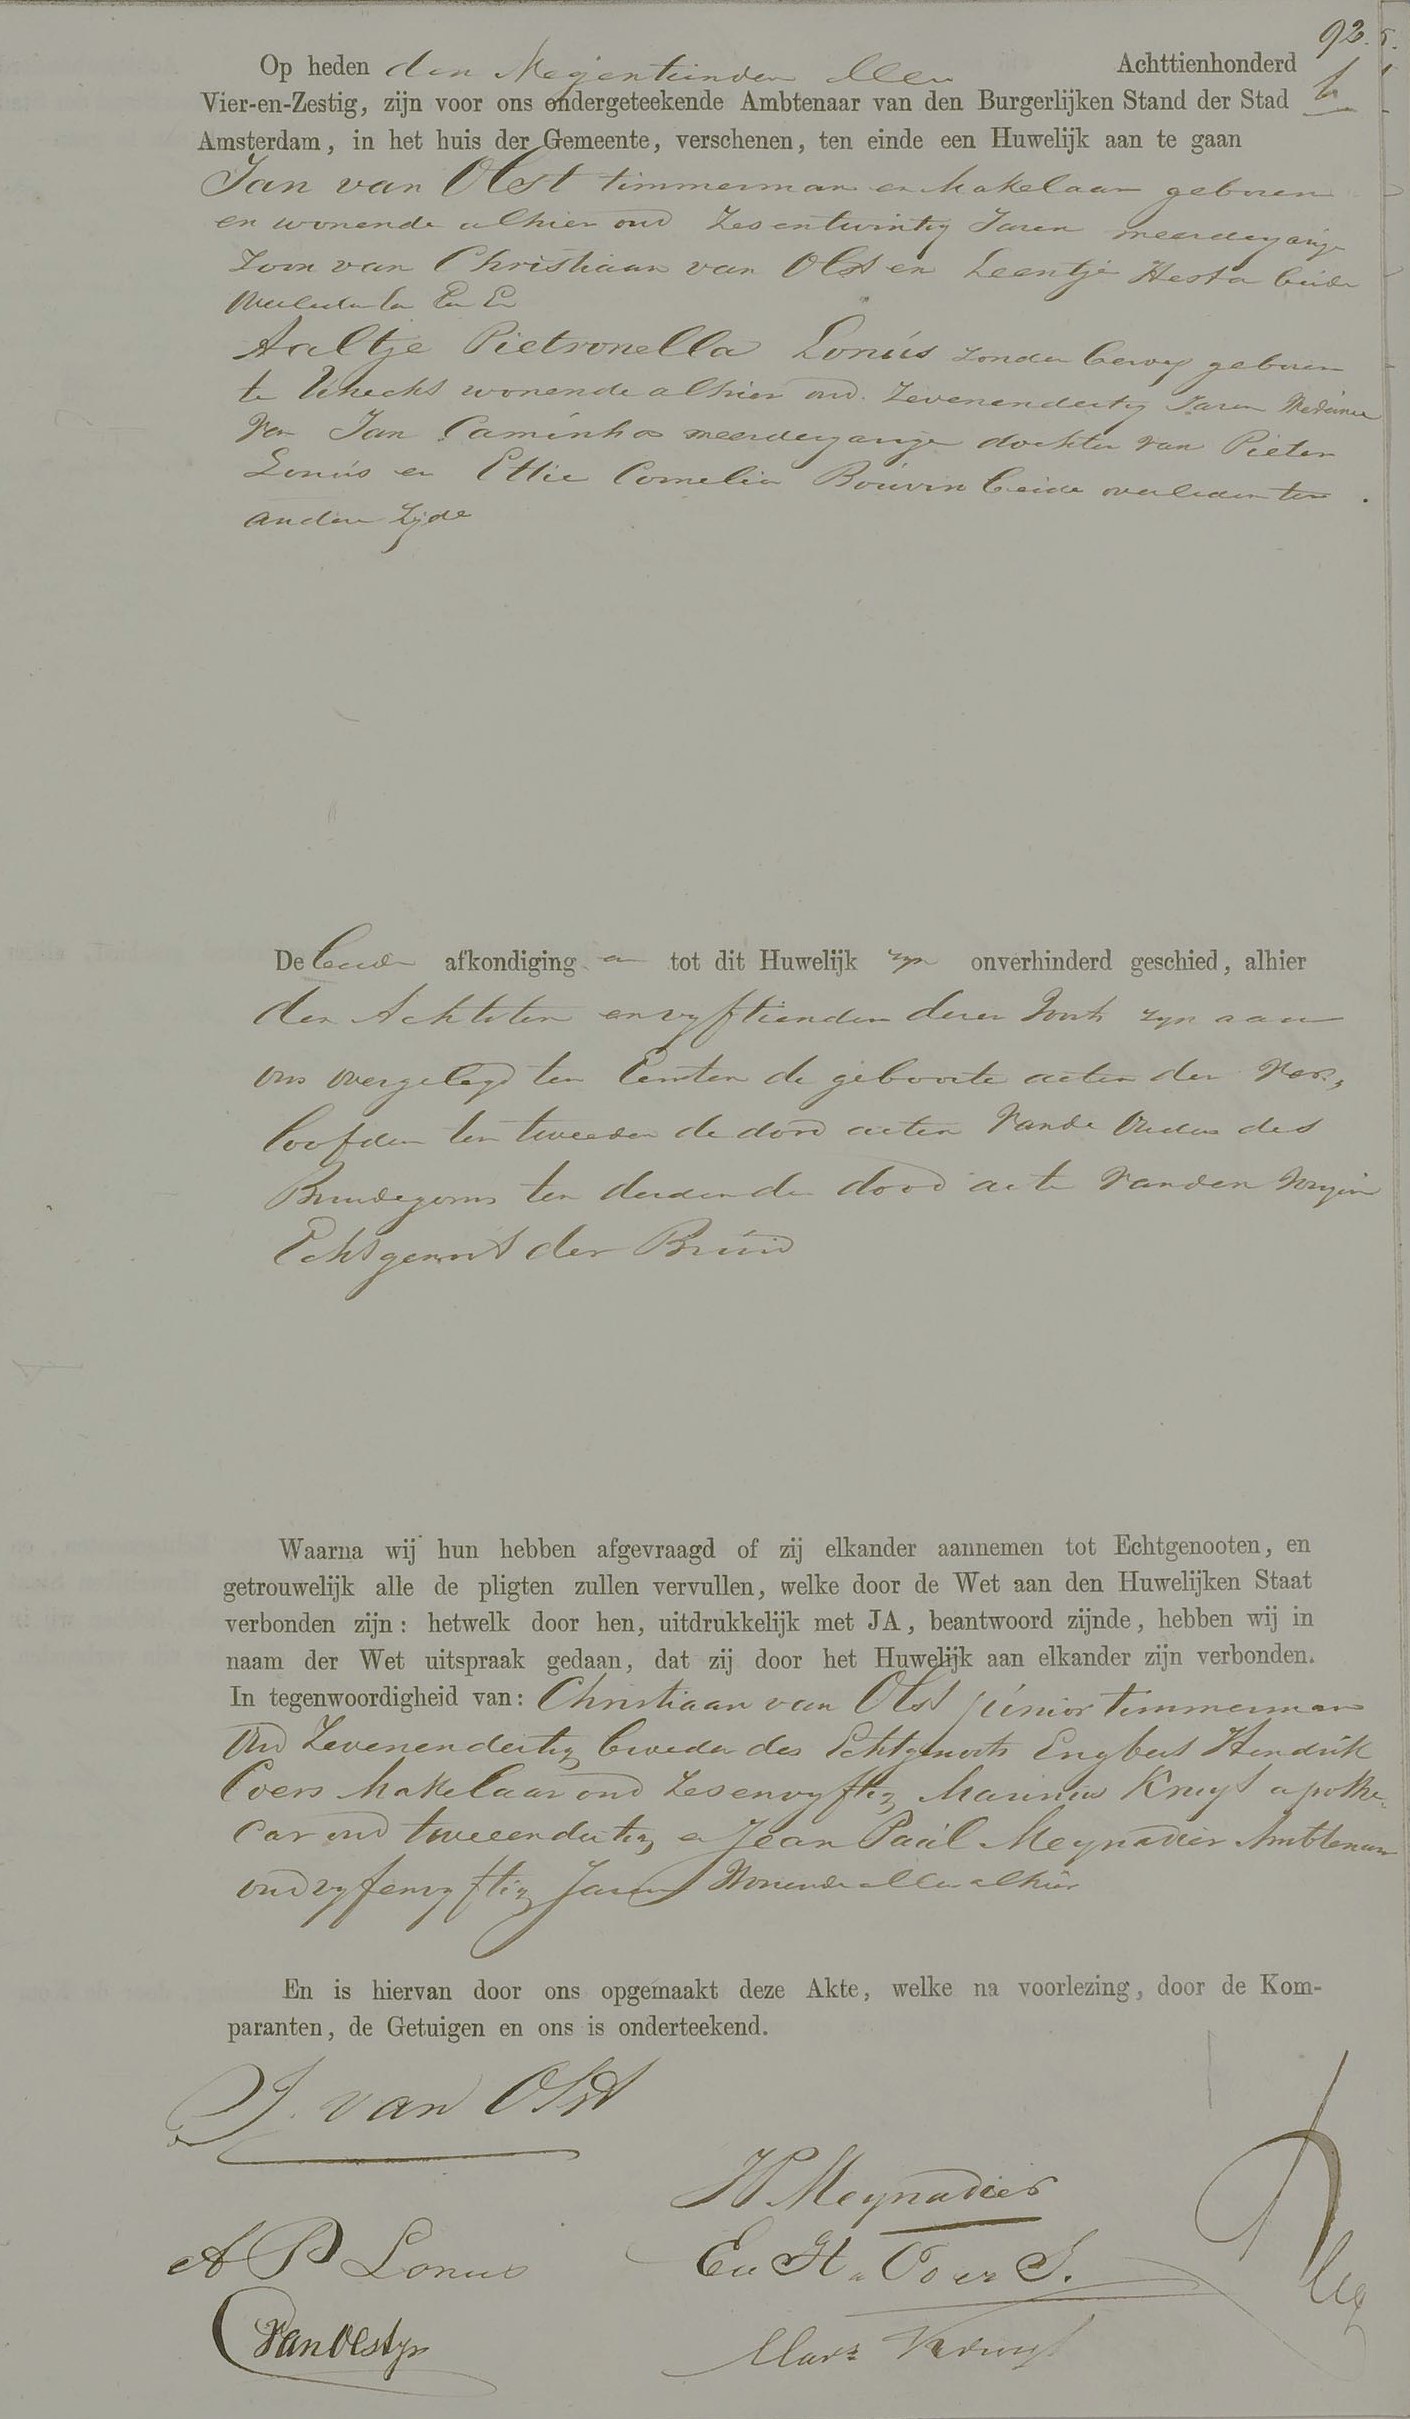 92.
Op heden den Negentienden Achttienhonderd
Vier-en-Zestig, zijn voor ons ondergeteekende Ambtenaar van den Burgerlijken Stand der Stad
Amsterdam, in het huis der Gemeente, verschenen, ten einde een Huwelijk aan te gaan
Jan van Olst timmerman en Makelaar geboren
en wonende alhier oud Zesentwintig Jaren meerderjarige
Zoon van Christiaan van Olst en Leentje Hesta beide
overleden ter
Aaltje Pietronella Lonús zonder beroep geboren
te Utrecht wonende alhier oud Zevenendertig Jaren Weduwe
van Jan Caminhos meerderjarige dochter van Pieter
Lonús en Ettie Cornelia Boúvin beide overleden ter
andere Zijde
De beide afkondiging en tot dit Huwelijk zyn onverhinderd geschied, alhier
den Achtsten en vyftienden dezer zyn aan
ons overgelegd ten Eersten de geboorte acten der Ver„
loofden ten tweeden de dood acten Vande Ouders des
Bruidegoms ten derden de dood acte Vanden Vorigen
Echtgenoot der Brúid
Waarna wij hun hebben afgevraagd of zij elkander aannemen tot Echtgenooten, en
getrouwelijk alle de pligten zullen vervullen, welke door de Wet aan den Huwelijken Staat
verbonden zijn: hetwelk door hen, uitdrukkelijk met JA, beantwoord zijnde, hebben wij in
naam der Wet uitspraak gedaan, dat zij door het Huwelijk aan elkander zijn verbonden.
In tegenwoordigheid van: Christiaan van Olst júnior timmerman
Oud Zevenendertig broeder des Echtgenoots Engbert Hendrik
Coers Makelaar oud Zesenvyftig Marinus Kruyt apothe„
car oud tweeendertig en Jean Paúl Meynadier Ambtenaar
oud vyfenvyftig Jaren Wonende allen alhier
En is hiervan door ons opgemaakt deze Akte, welke na voorlezing, door de Kom-
paranten, de Getuigen en ons is onderteekend.
J. van Olst
JP Meynadier
A P Lonus
En H. Coers.
C van Olst jr